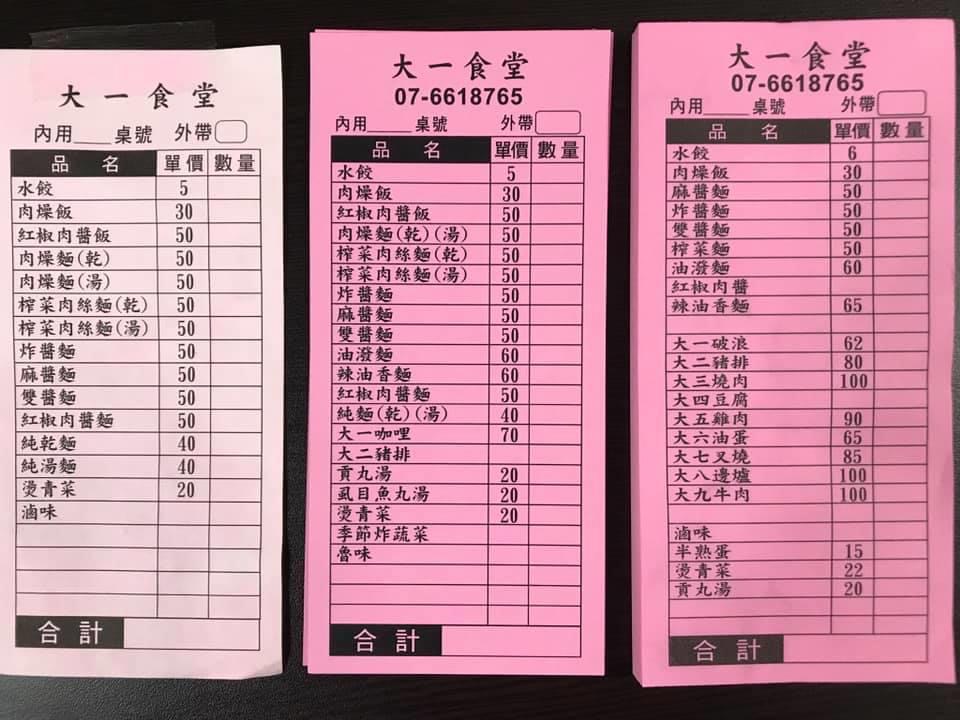 大一食堂
內用____桌號 外帶
品名 單價 數量
水餃 5
肉燥飯 30
紅椒肉醬飯 50
肉燥麵(乾) 50
肉燥麵(湯) 50
榨菜肉絲麵(乾) 50
榨菜肉絲麵(湯) 50
炸醬麵 50
麻醬麵 50
雙醬麵 50
紅椒肉醬麵 50
純乾麵 40
純湯麵 40
燙青菜 20
滷味
合計
大一食堂
07-6618765
內用____桌號 外帶
品名 單價 數量
水餃 5
肉燥飯 30
紅椒肉醬飯 50
肉燥麵(乾)(湯) 50
榨菜肉絲麵(乾) 50
榨菜肉絲麵(湯) 50
炸醬麵 50
麻醬麵 50
雙醬麵 50
油潑麵 60
辣油香麵 60
紅椒肉醬麵 50
純麵(乾)(湯) 40
大一咖哩 70
大二豬排
貢丸湯 20
虱目魚丸湯 20
燙青菜 20
季節炸蔬菜
魯味
合計
大一食堂
07-6618765
內用____桌號 外帶
品名 單價 數量
水餃 6
肉燥飯 30
麻醬麵 50
炸醬麵 50
雙醬麵 50
榨菜麵 50
油潑麵 60
紅椒肉醬
辣油香麵 65
大一破浪 62
大二豬排 80
大三燒肉 100
大四豆腐
大五雞肉 90
大六油蛋 65
大七叉燒 85
大八邊爐 100
大九牛肉 100
滷味
半熟蛋 15
燙青菜 22
貢丸湯 20
合計